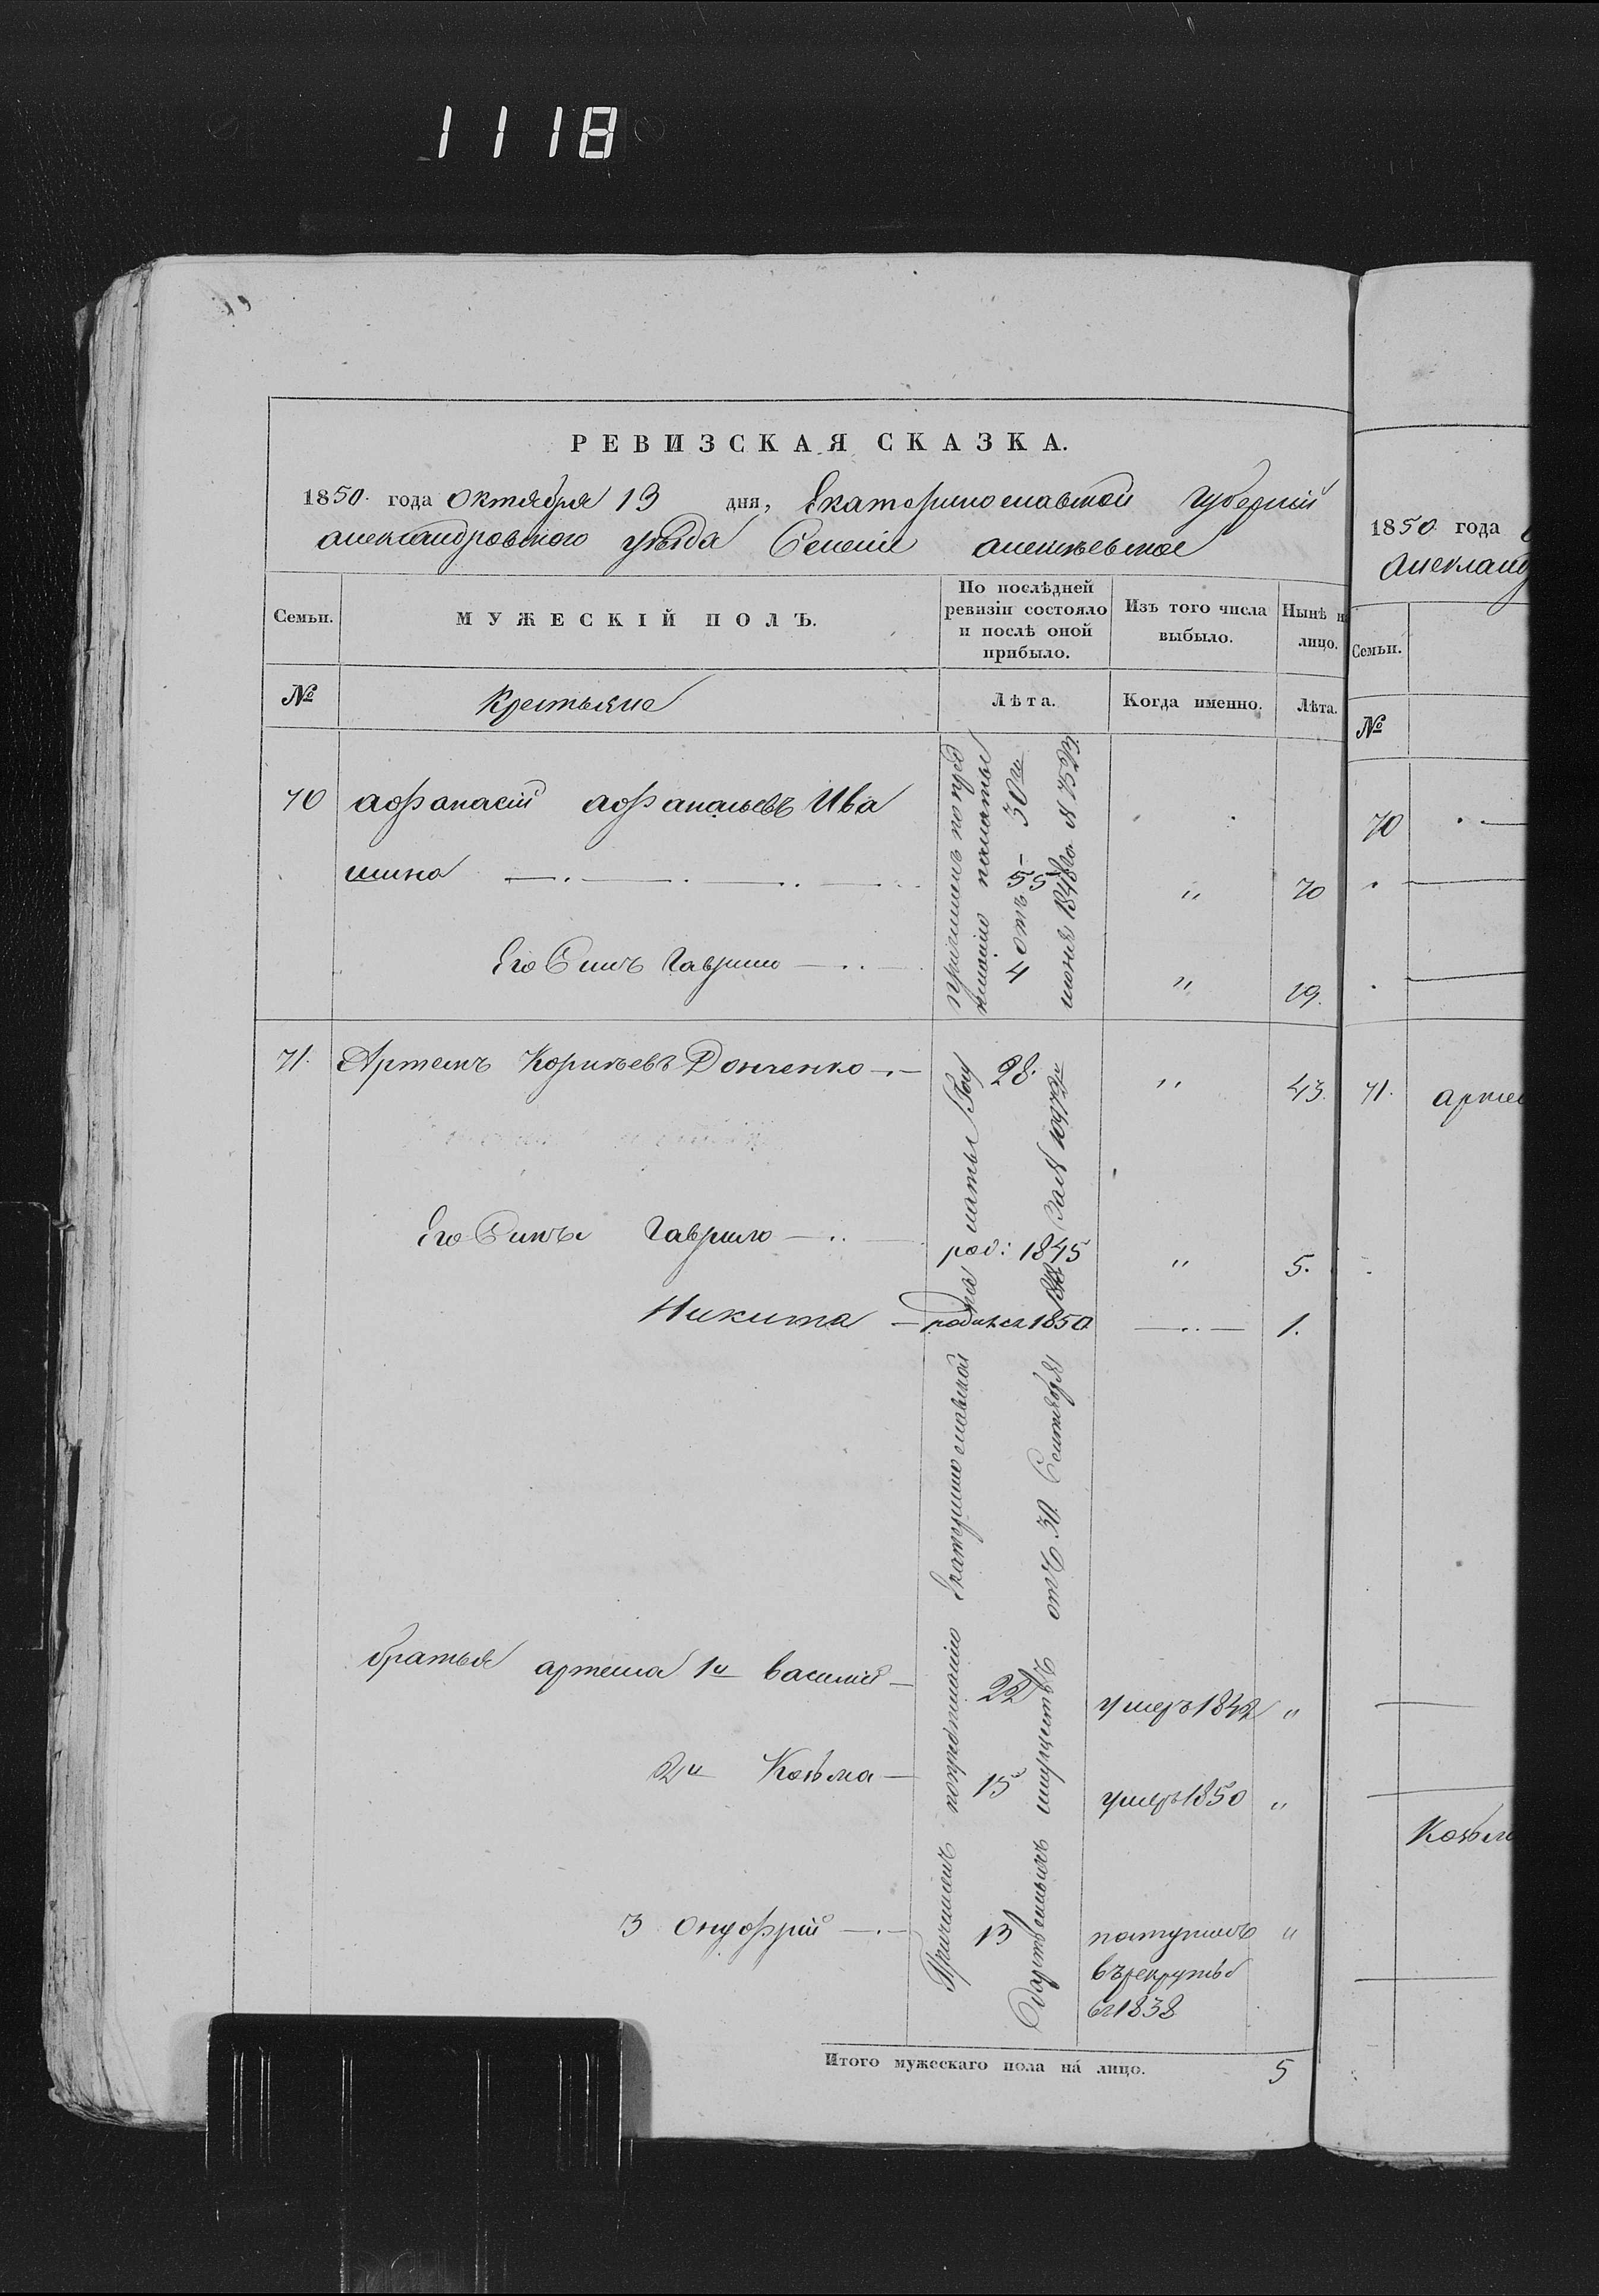 1118
РЕВИЗСКАЯ СКАЗКА.
1850. года Октября 13 дня, Екатеринославской губерніи
александровского уѣзда Селеніе алексѣевское
Семьи.
МУЖЕСКІЙ ПОЛЪ.
По послѣдней
ревизіи состояло
и послѣ оной
прибыло.
Изъ того числа
выбыло.
Нынѣ н
лицо.
№
Крестьяне
Лѣта.
Когда именно.
Лѣта.
70 афанасій афанасьевъ Ива
шина 55 " 70
Его Сынъ Гаврило 4 " 19.
Причисленъ по пред
писанію палаты
отъ 30го
июня 1848го № 7593
71. Артемъ Корнѣевъ Донченко 28. " 43.
Его Сыны Гаврило род: 1845 " 5.
Никита родился 1850 1.
братья артема 1й василий 22 умеръ 1842 "
2й Козьма 15 умеръ 1850 "
3 Онуфрій 13 поступилъ "
въ рекруты
въ 1838
Причисленъ по предписанію Екатеринославской палаты Госу
дарственныхъ имуществъ отъ 30 Сентября
Итого мужескаго пола на лицо. 5
1850 года
Александ
Семьи.
№
70
71. арте
Козьм